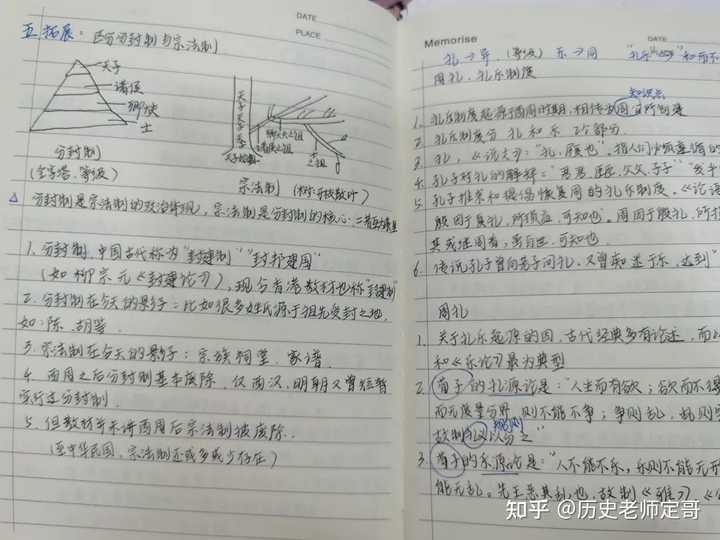 DATE
PLACE
五 拓展：区分分封制与宗法制
天子
诸侯
卿大夫
士
分封制
(金字塔、等级)
宗法制 (树

分封制是宗法制的政治体现，宗法制是分封制的核心：
1. 分封制，中国古代称为"封建制""封邦建国"
(如柳宗元《封建论》)，现今香港教材也称"封建制"
2. 分封制在今天的影子：比如很多姓氏源于祖先受封之地，
如：陈、胡等.
3. 宗法制在今天的影子：宗族祠堂、家谱.
4. 西周之后分封制基本废除，仅西汉、明朝又曾短暂
实行过分封制.
5. 但教材并未讲西周后宗法制被废除.
(至中华民国，宗法制还或多或少存在)
Memorise
DATE
礼→异 (等级) 乐→同
周礼、礼乐制度
知识点
1. 礼乐制度起源于西周时期，相传为周公所创建
2. 礼乐制度分 礼 和 乐 2个部分
3. 礼，《说文》："礼，履也"，指人们
4. 孔子对礼的解释："君君、臣臣、父父、子子"
5. 孔子推崇和提倡恢复周的礼乐制度，《论语
殷因于夏礼，所损益，可知也。周因于殷礼，所
其或继周者，虽百世，可知也.
6. 传说孔子曾向老子问礼，又曾
周礼
1. 关于礼乐起源的因，古代经典多有论述，而
和《乐论》最为典型
2. 荀子的礼源论是："人生而有欲；欲而不得
而无度量分界，则不能不争；争则乱，乱则穷
故制礼义以分之"
3. 荀子的乐源论是："人不能不乐，乐则不能无形
能无乱。先王恶其乱也，故制《雅》、
知乎 @历史老师定哥